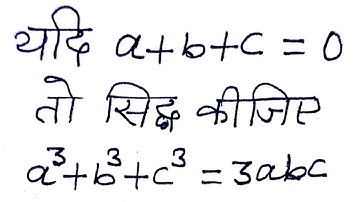 यदि a+b+c = 0
तो सिद्ध कीजिए
a³+b³+c³ = 3abc